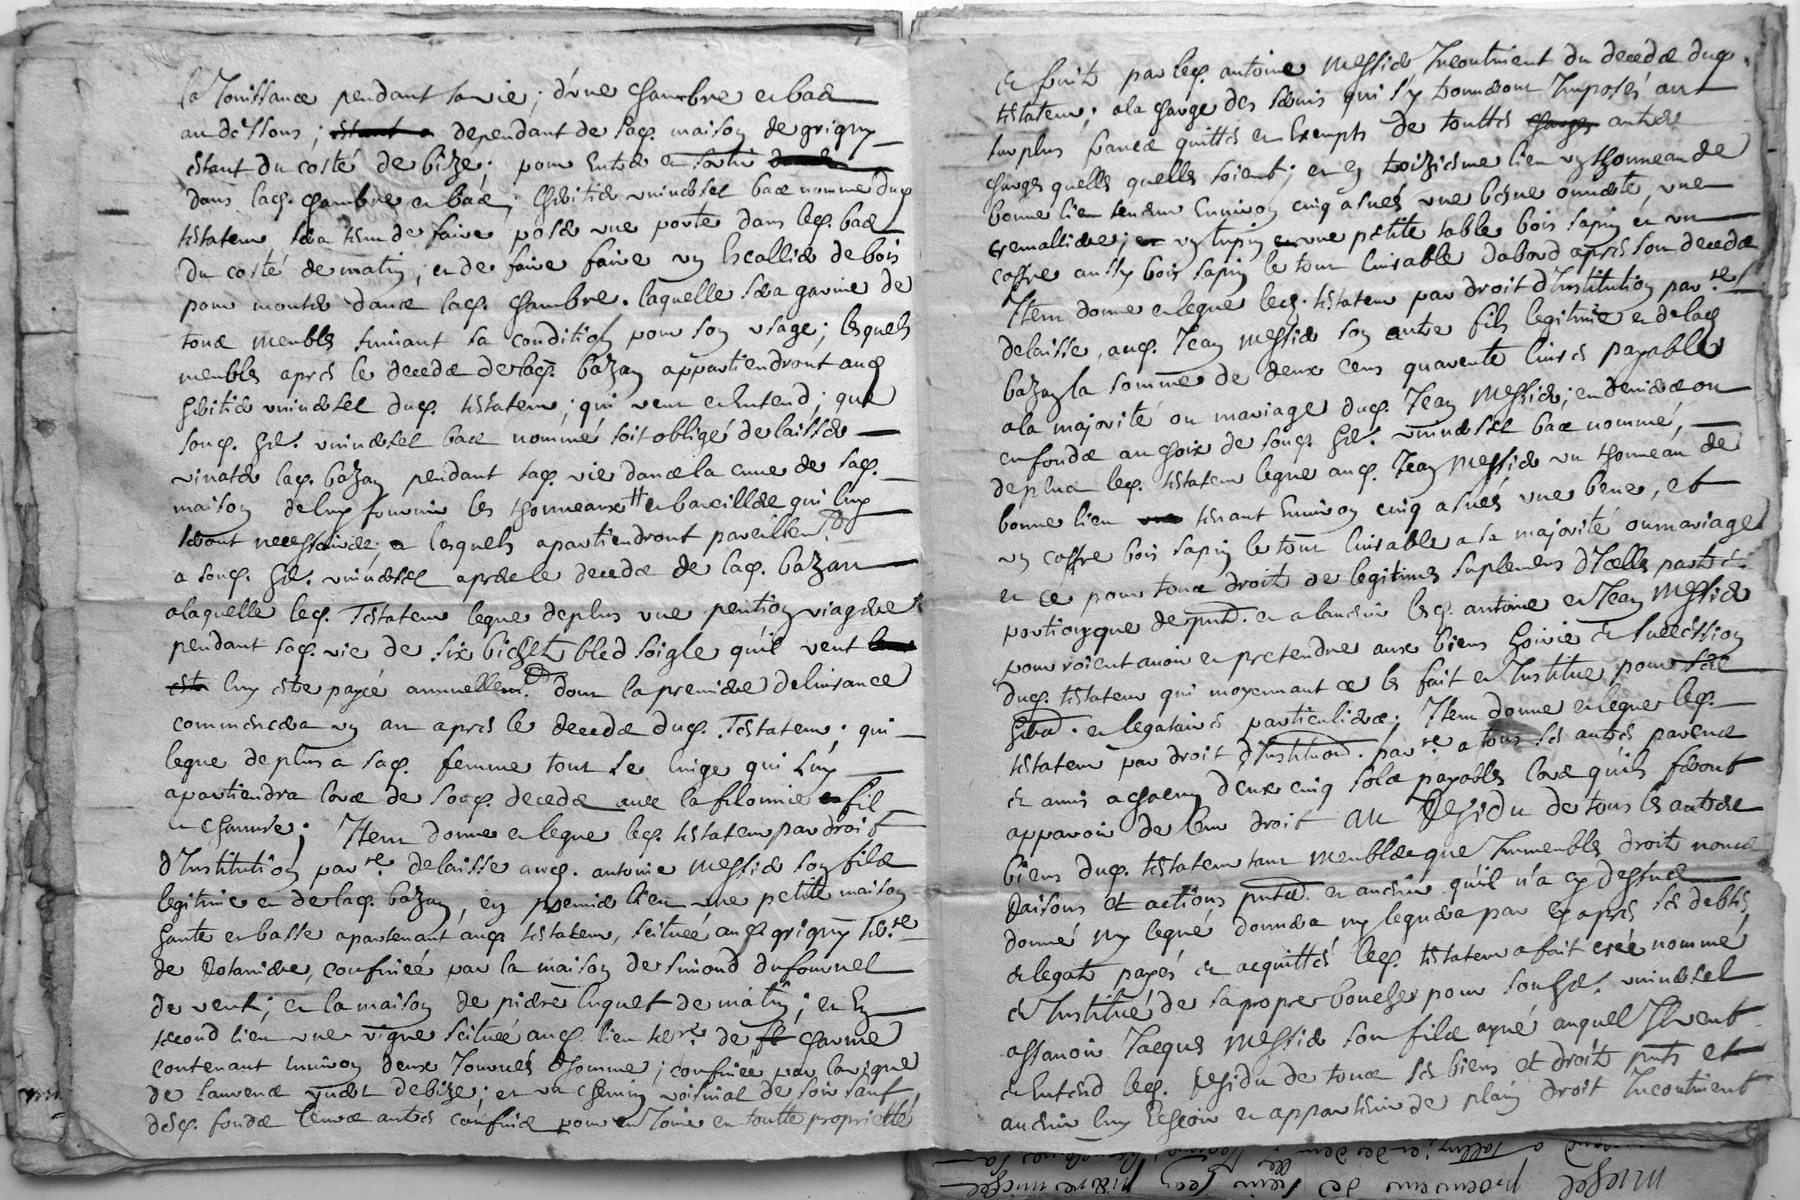 la Jouissance pendant sa vie; d'une chambre et bas
au dessous; dependant de sad. maison de grigny
estant du costé de bize; pour Entrer et sortir
dans lad. chambre et bas; heritier universel bas nommé dud.
testateur sera tenu de faire poser une porte dans led. bas
du costé de matin; et de faire faire un Escallier de bois
pour monter dans lad. chambre. laquelle sera garnie de
tous meubles suivant sa condition pour son usage; lesquels
meubles apres le deceds de lad. bazan appartiendront aud.
heritier universel dud. testateur; qui veut et Entend; que
soud. her. universel bas nommé soit obligé de laisser
lad. bazan pendant sad. vie dans la cuve de sad.
maison de luy fournir les thonneaux et bareilles qui luy
seront necessaires; lesquels apartiendront pareillem.t
a soud. her. universel apres le deceds de lad. bazan
a laquelle led. Testateur legue de plus une pention viagere
pendant sad. vie de six bichets bled soigle qu'il veut
luy estre payée annuellem.t dont la premiere delivrance
commencera un an apres le deceds dud. Testateur; qui
legue de plus a sad. femme tout le linge qui luy
apartiendra lors de soud. deceds avec la filounie fil
et chanvre; Item donne et legue led. testateur par droit
d'Institution par.re delaisse aud. antoine Messier son fils
legitime et de lad. bazan, en premier lieu une petite maison
haute et basse apartenant aud. testateur, scituée aud. grigny
confinée par la maison de simond dufournel
de vent; et la maison de pierre luquet de matin; et En
second lieu une vigne scituée aud. lieu terr.e de charme
contenant Environ deux Journés d'homme; confinée par la vigne
de laurens de bize; et un chemin voisinal de soir sauf
desd. fonds leurs autres confins pour en Jouir en toutte proprietté
et fruits par led. antoine Messier Incontinent du deceds dud.
testateur; a la charge des servis qui s'y trouveront Imposés au
surplus francs quittes et Exempts de touttes autres
charges quelles quelles soient; et en troizieme lieu un thonneau de
bonne lieu tenant Environ cinq asnés une benne ouverte, une
cremalliere; un tupin une petitte table bois sapin et un
coffre aussy bois sapin le tout livrable dabord apres son deceds
Item donne et legue led. testateur par droit d'Institution par.re
delaisse, aud. Jean Messier son autre fils legitime et de lad.
bazan la somme de deux cens quarente livres payable
a la majorité ou mariage dud. Jean Messier; en deniers ou
en fonds au choix de soud. her. universel bas nommé,
de plus led. testateur legue aud. Jean Messier un thonneau de
bonne lieu tenant Environ cinq asnés une bene, et
un coffre bois sapin le tout livrable a sa majorité ou mariage
et ce pour tous droits de legitimes suplemens d'Icelles part et
portion que de pnt. et a lavenir lesd. antoine et Jean Messier
pourroient avoir et pretendre aux biens hoirie et succession
dud. testateur qui moyennant ce les fait et Institue pour ses
herit. et legataires particuliers; Item donne et legue led.
testateur par droit d'Instituon. par.re a tous ses autres parens
et amis a chacun d'eux cinq sols payables lors qu'ils feront
apparoir de leur droit Au Residu de tous les autres
biens dud. testateur tant meubles que Immeubles droits noms
Raisons et actions pnts. et avenir qu'il n'a cy dessus
donné ny legué donnera ny leguera par cy apres ses debtes
et legats payés et acquittés led. testateur a fait creé nommé
et Institué de sa propre bouche pour son her. universel
assavoir Jacques Messier son fils ayné auquel Il veut
et Entend led. Residu de tous ses biens et droits pnts et
avenir luy Escheoir et appartenir de plain droit Incontinent